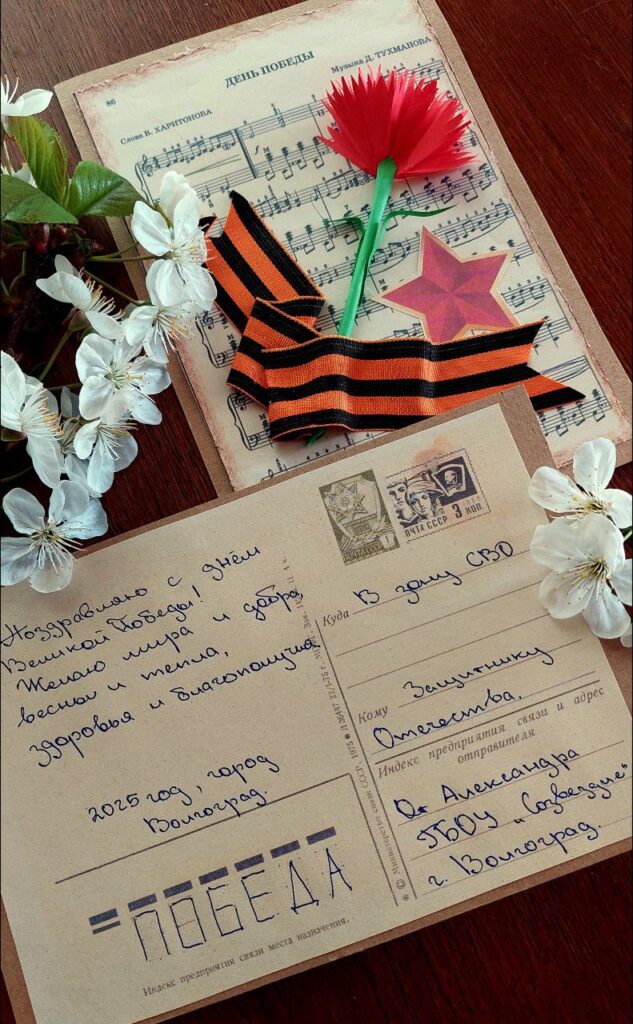 ДЕНЬ ПОБЕДЫ
86
Музыка Д. ТУХМАНОВА
Слова В. ХАРИТОНОВА
ПОЧТА СССР 3 КОП.
Поздравляю с днём
Великой Победы!
Желаю мира и добра,
весны и тепла,
здоровья и благополучия
2025 год, город
Волгоград.
ПОБЕДА
Индекс предприятия связи места назначения.
* © Министерство связи СССР. 1975
Куда В зону СВО
Кому Защитнику
Отечества.
Индекс предприятия связи и адрес
отправителя
От Александра
ГБОУ „Созвездие"
г. Волгоград.